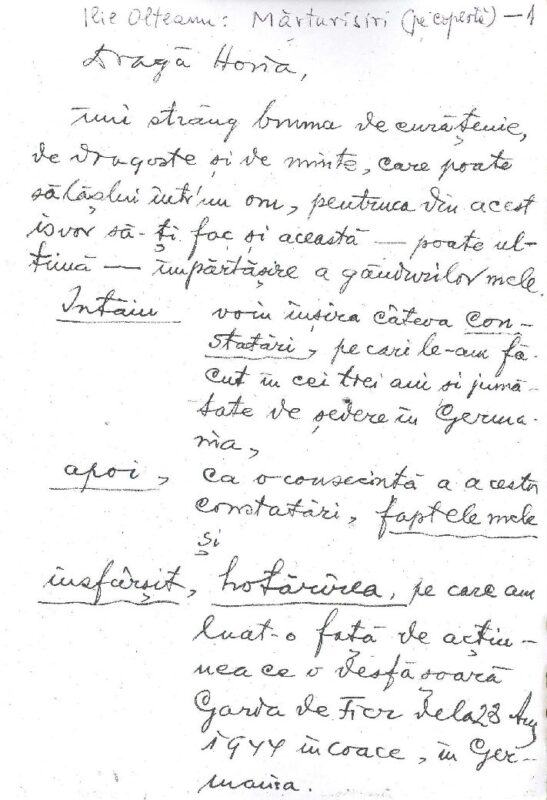 Ilie Olteanu: Mărturisiri (pe copertă) — 1
Dragă Horia,
îmi strâng bruma de curățenie,
de dragoste și de minte, care poate
sălășlui într'un om, pentruca din acest
isvor să-ți fac și această — poate ul-
timă — împărtășire a gândurilor mele.
Întâiu voiu înșira câteva con-
statări, pe cari le-am fă-
cut în cei trei ani si jumă-
tate de ședere în Germa-
nia,
apoi, ca o consecință a acestor
constatări, faptele mele
și
însfârșit, hotărîrea, pe care am
luat-o față de acțiu-
nea ce o desfășoară
Garda de Fier dela 23 Aug
1944 încoace, în Ger-
mania.